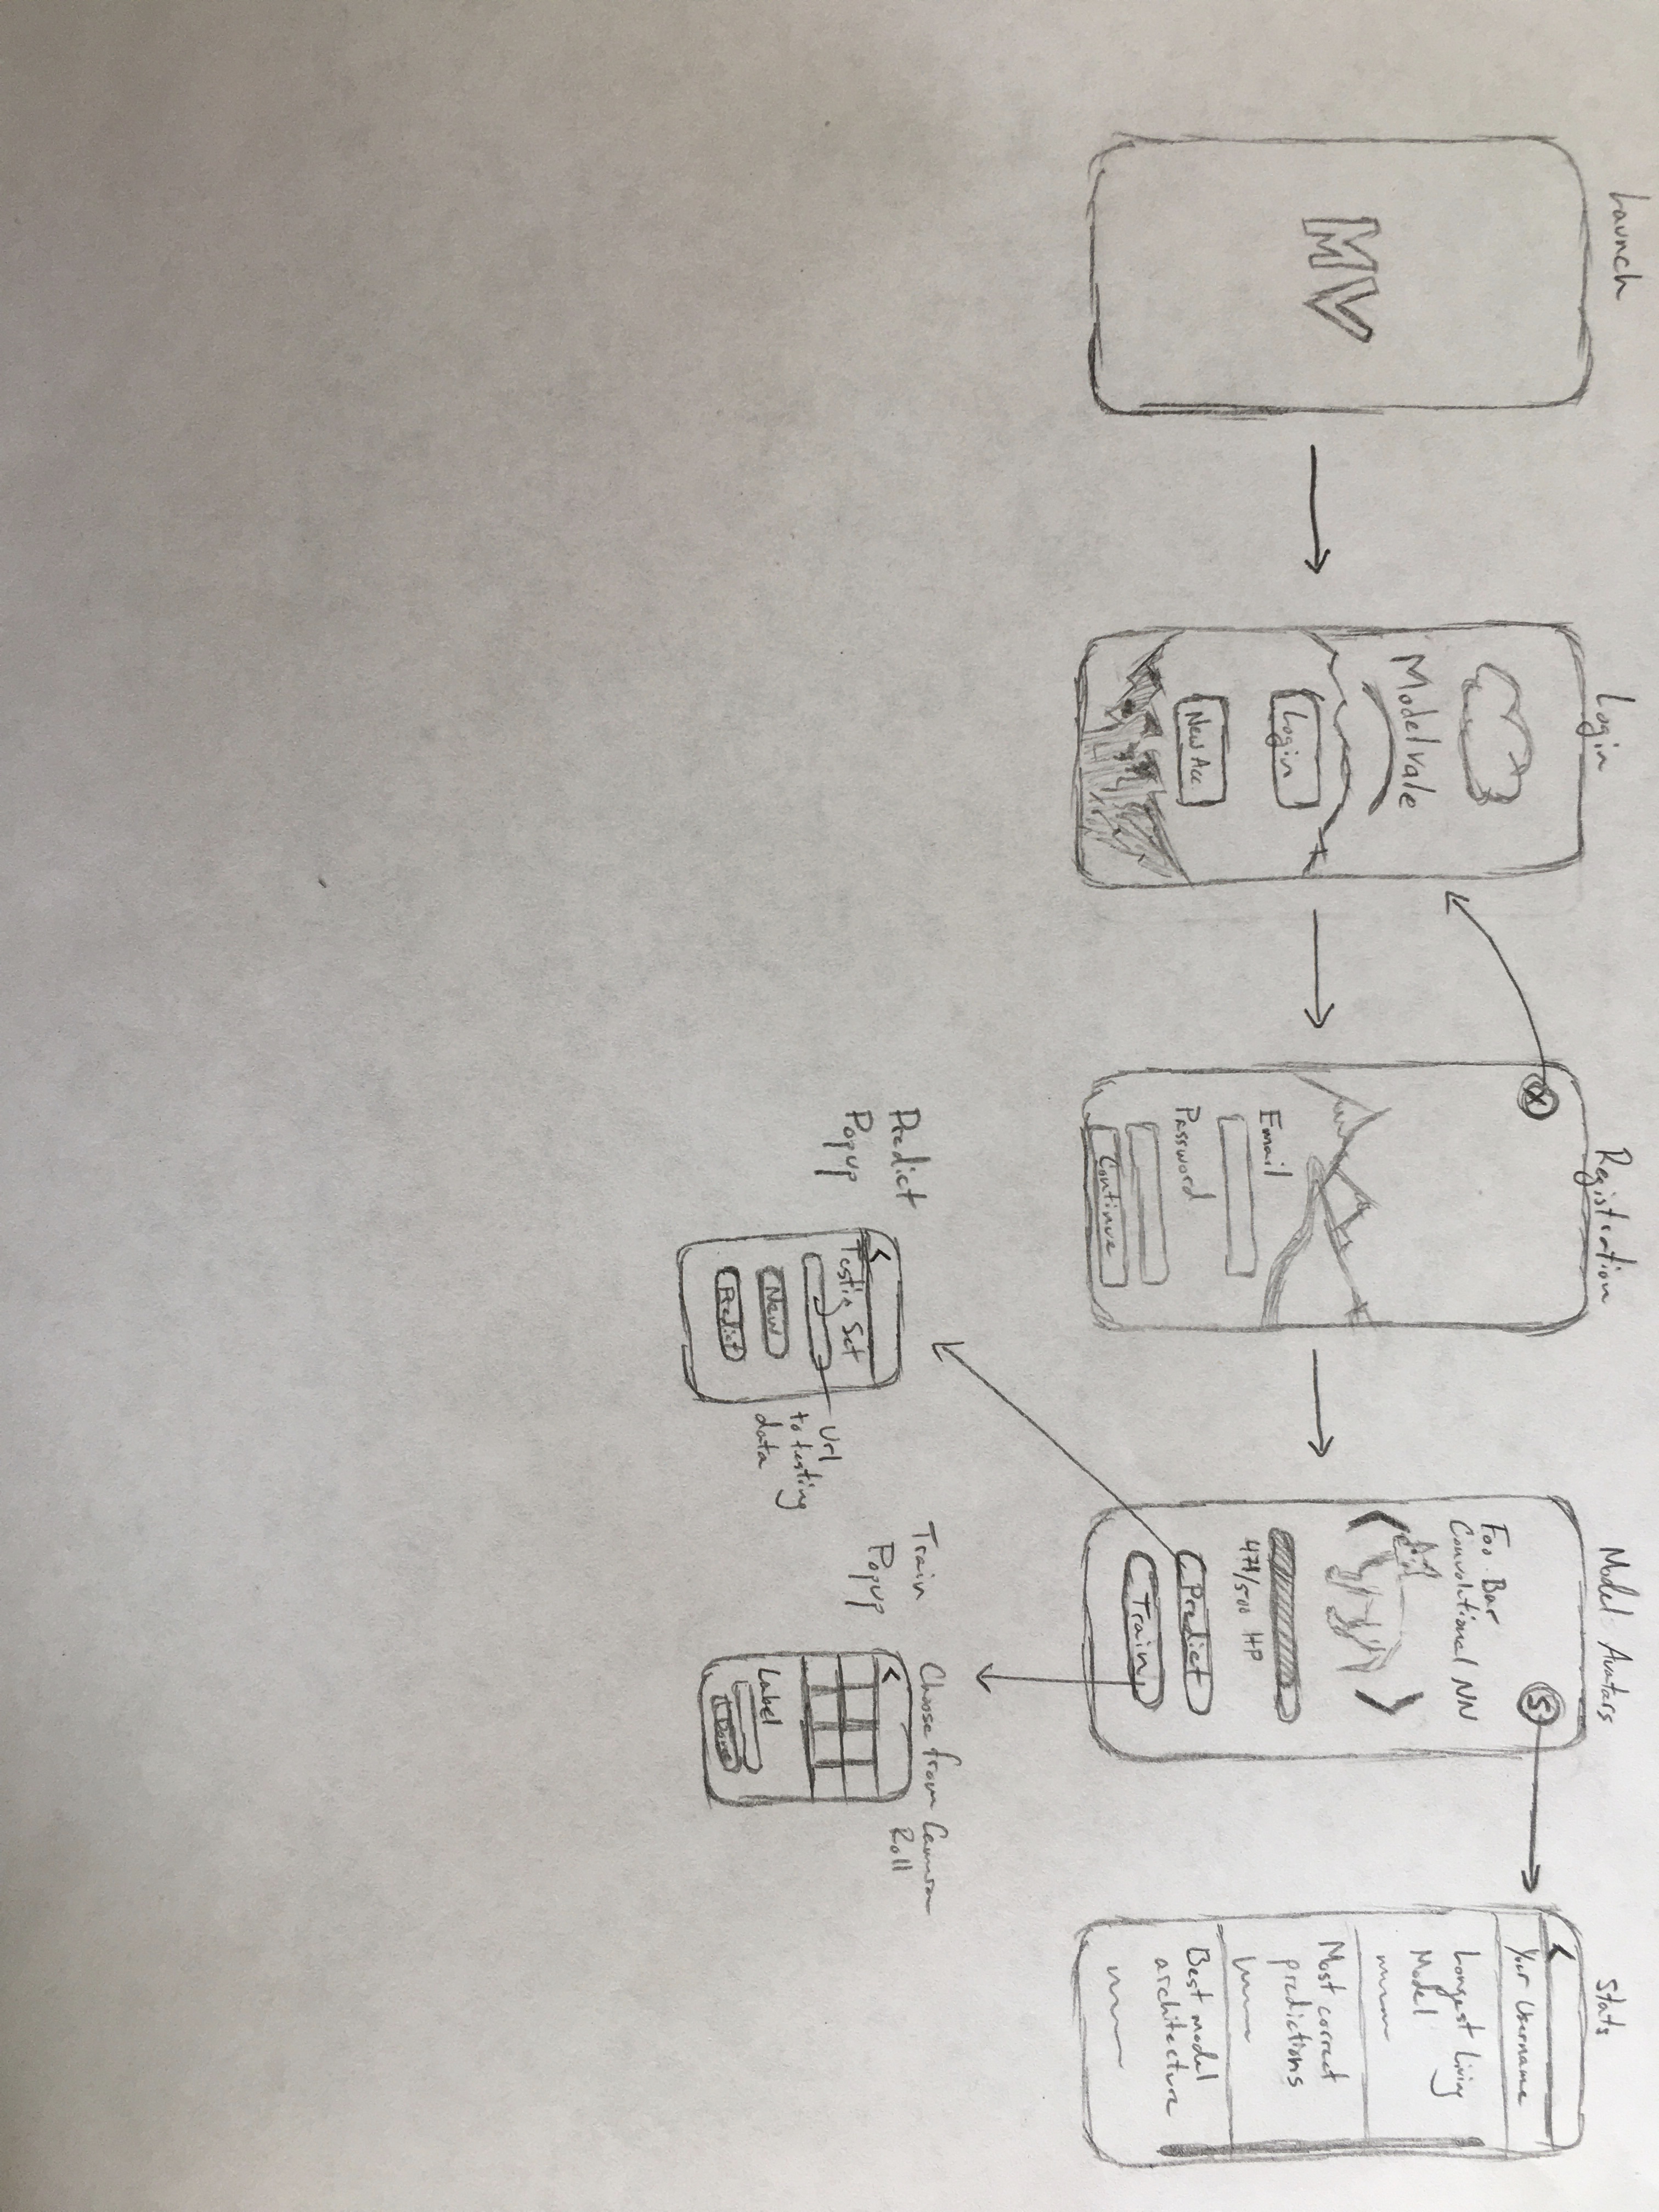 Launch
MV
Login
Modelvale
Login
New Acc
Registration
X
Email
Password
Continue
Model Avatars
S
Foo Bar
Convolutional NN
471/500 HP
Predict
Train
Stats
<
Your Username
Longest Living
Model
Most correct
predictions
Best model
architecture
Predict
Popup
<
Testin Set
New
Predict
Url
to testing
data
Train
Popup
Choose from Camera
Roll
<
Label
Done